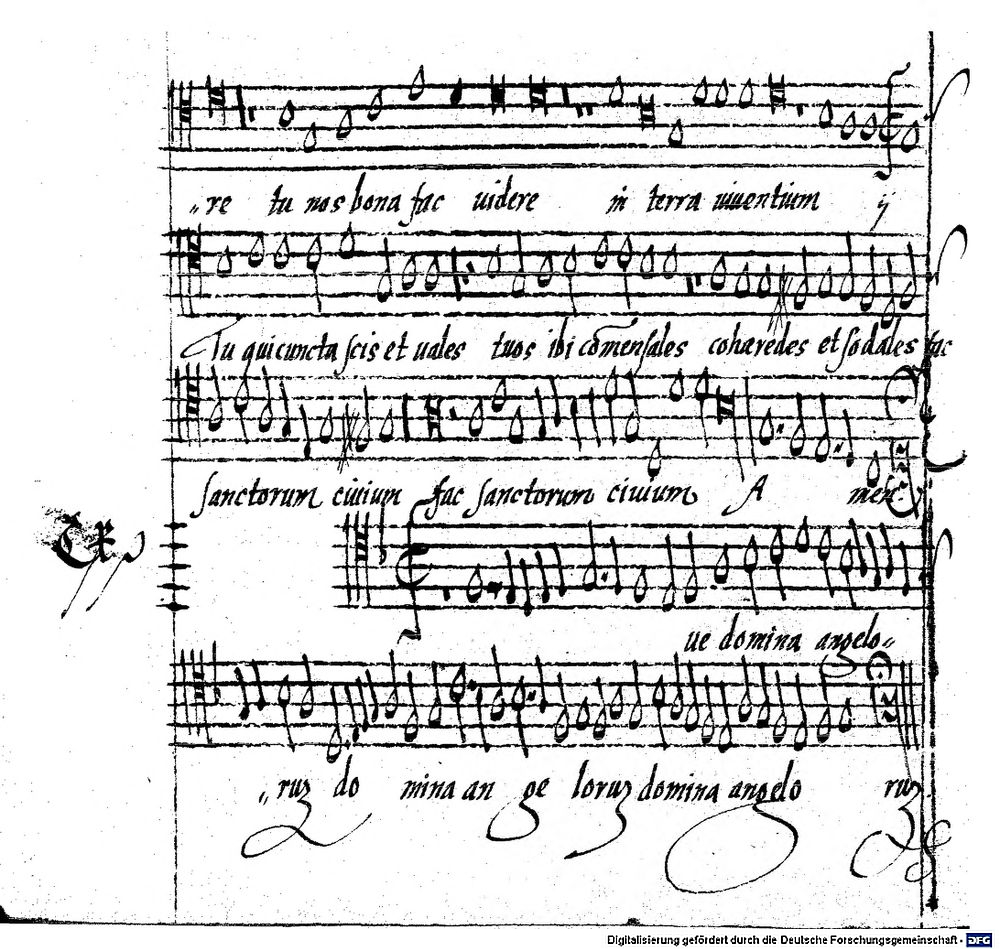 „re tu nos bona fac uidere in terra uiuentium ij
Tu qui cuncta scis et uales tuos ibi com̄ensales cohæredes et sodales fac
sanctorum ciuium fac sanctorum ciuium A men
ue domina angelo„
„ruʒ do mina an ge loruʒ domina angelo ruʒ
Digitalisierung gefördert durch die Deutsche Forschungsgemeinschaft - DFG